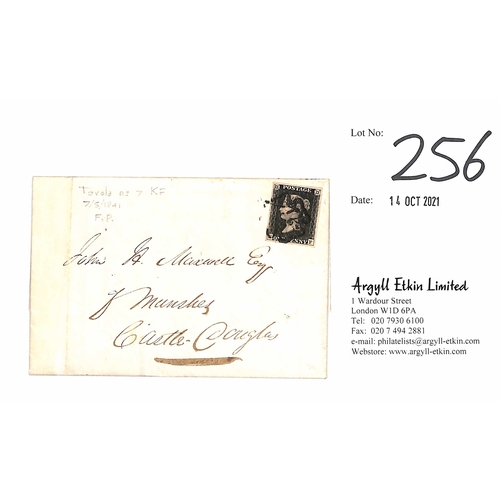 Lot No: 256
Date: 14 OCT 2021
Argyll Etkin Limited
1 Wardour Street
London W1D 6PA
Tel: 020 7930 6100
Fax: 020 7 494 2881
e-mail: philatelists@argyll-etkin.com
Webstore: www.argyll-etkin.com
7/5/1841
F.P.
POSTAGE
John H. Maxwell Esq
Munshes
Castle-Douglas